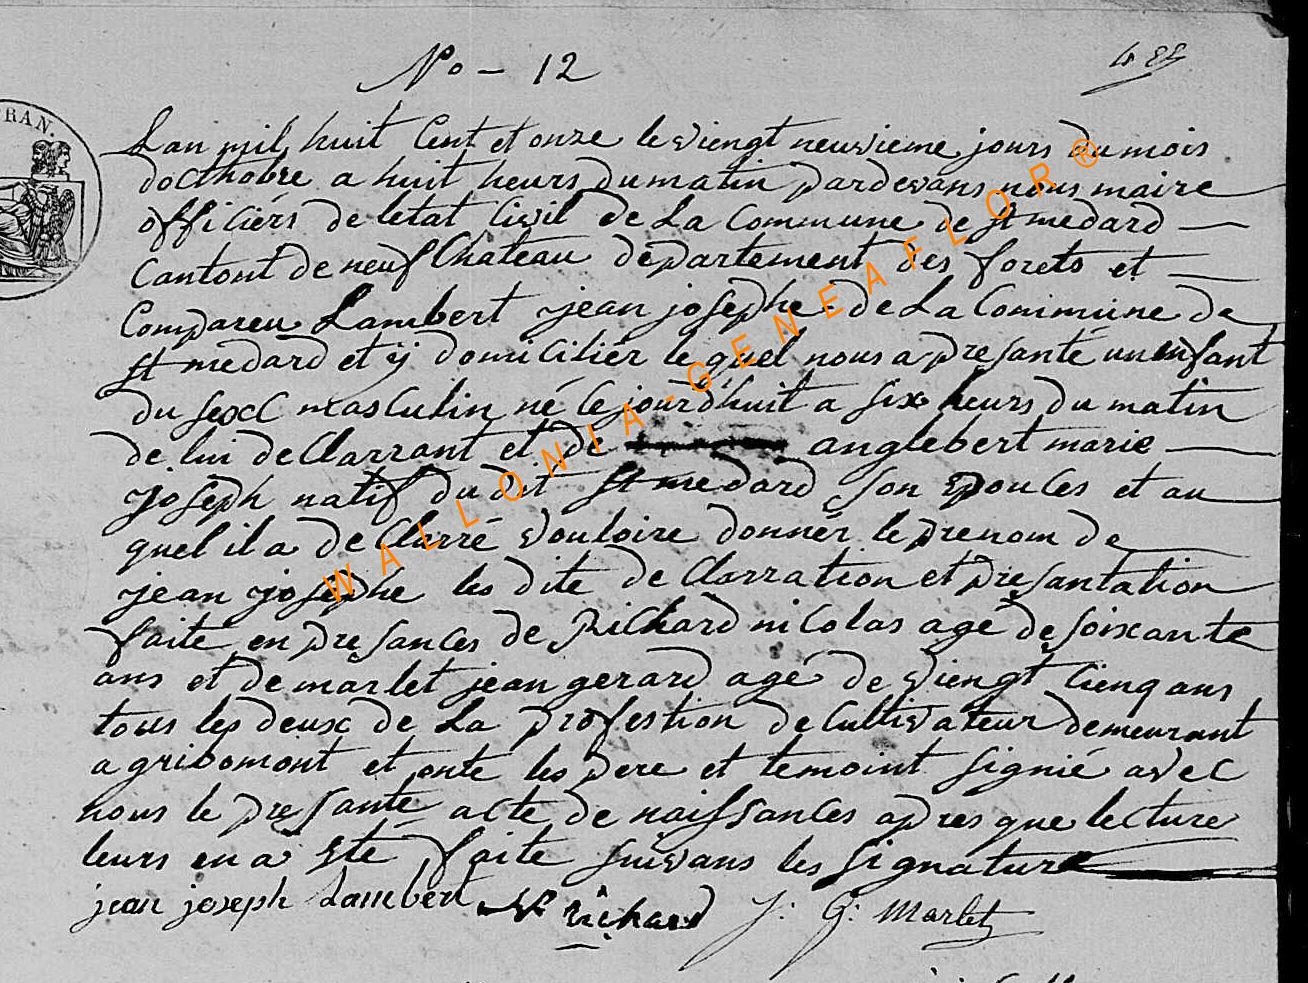 No - 12
RAN.
Lan mil huit Cent et onze le viengt neuvieme jours du mois
docthobre a huit heurs du matin pardevans nous maire
officiérs de letat Civil de La Commune de st medard
Cantont de neuf Chateau departement des forets et
Compareu Lambert jean josephe de La Commune de
st medard et ÿ domiciliér le quel nous a presanté un enfant
du sexe masculin né Cejourd'huit a six heurs du matin
de lui deClarrant et de anglebert marie
joseph natif du dit st medard son epouces et au
quel il a deClarré vouloire donnér le prenom de
jean josephe les dite de Clarration et presantation
faite en presances de Richard nicolas age de soixante
ans et de marlet jean gerard agé de viengt Cienq ans
tous les deux de La profestion de Cultivateur demeurant
a gribomont et onte les pere et temoint signié avec
nous le presante acte de naissances apres que lecture
leurs en a eté faite suivans les signature
jean joseph Lambert N richard J: G: Marlet
WALLONIA-GENEAFLOR®